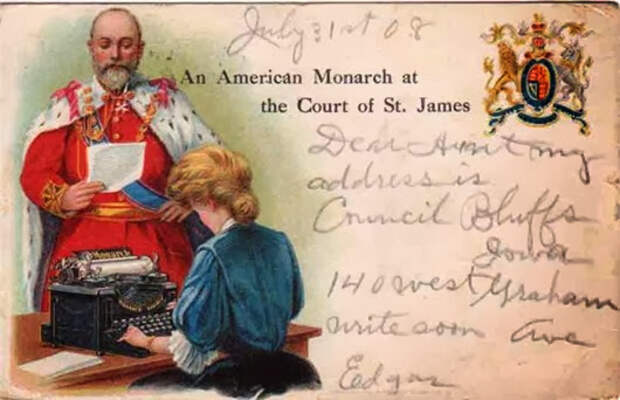 July 31st 08
An American Monarch at
the Court of St. James
Monarch
Dear Aunt my
address is
Council Bluffs
Iowa
140 west Graham
write soon Ave
Edgar